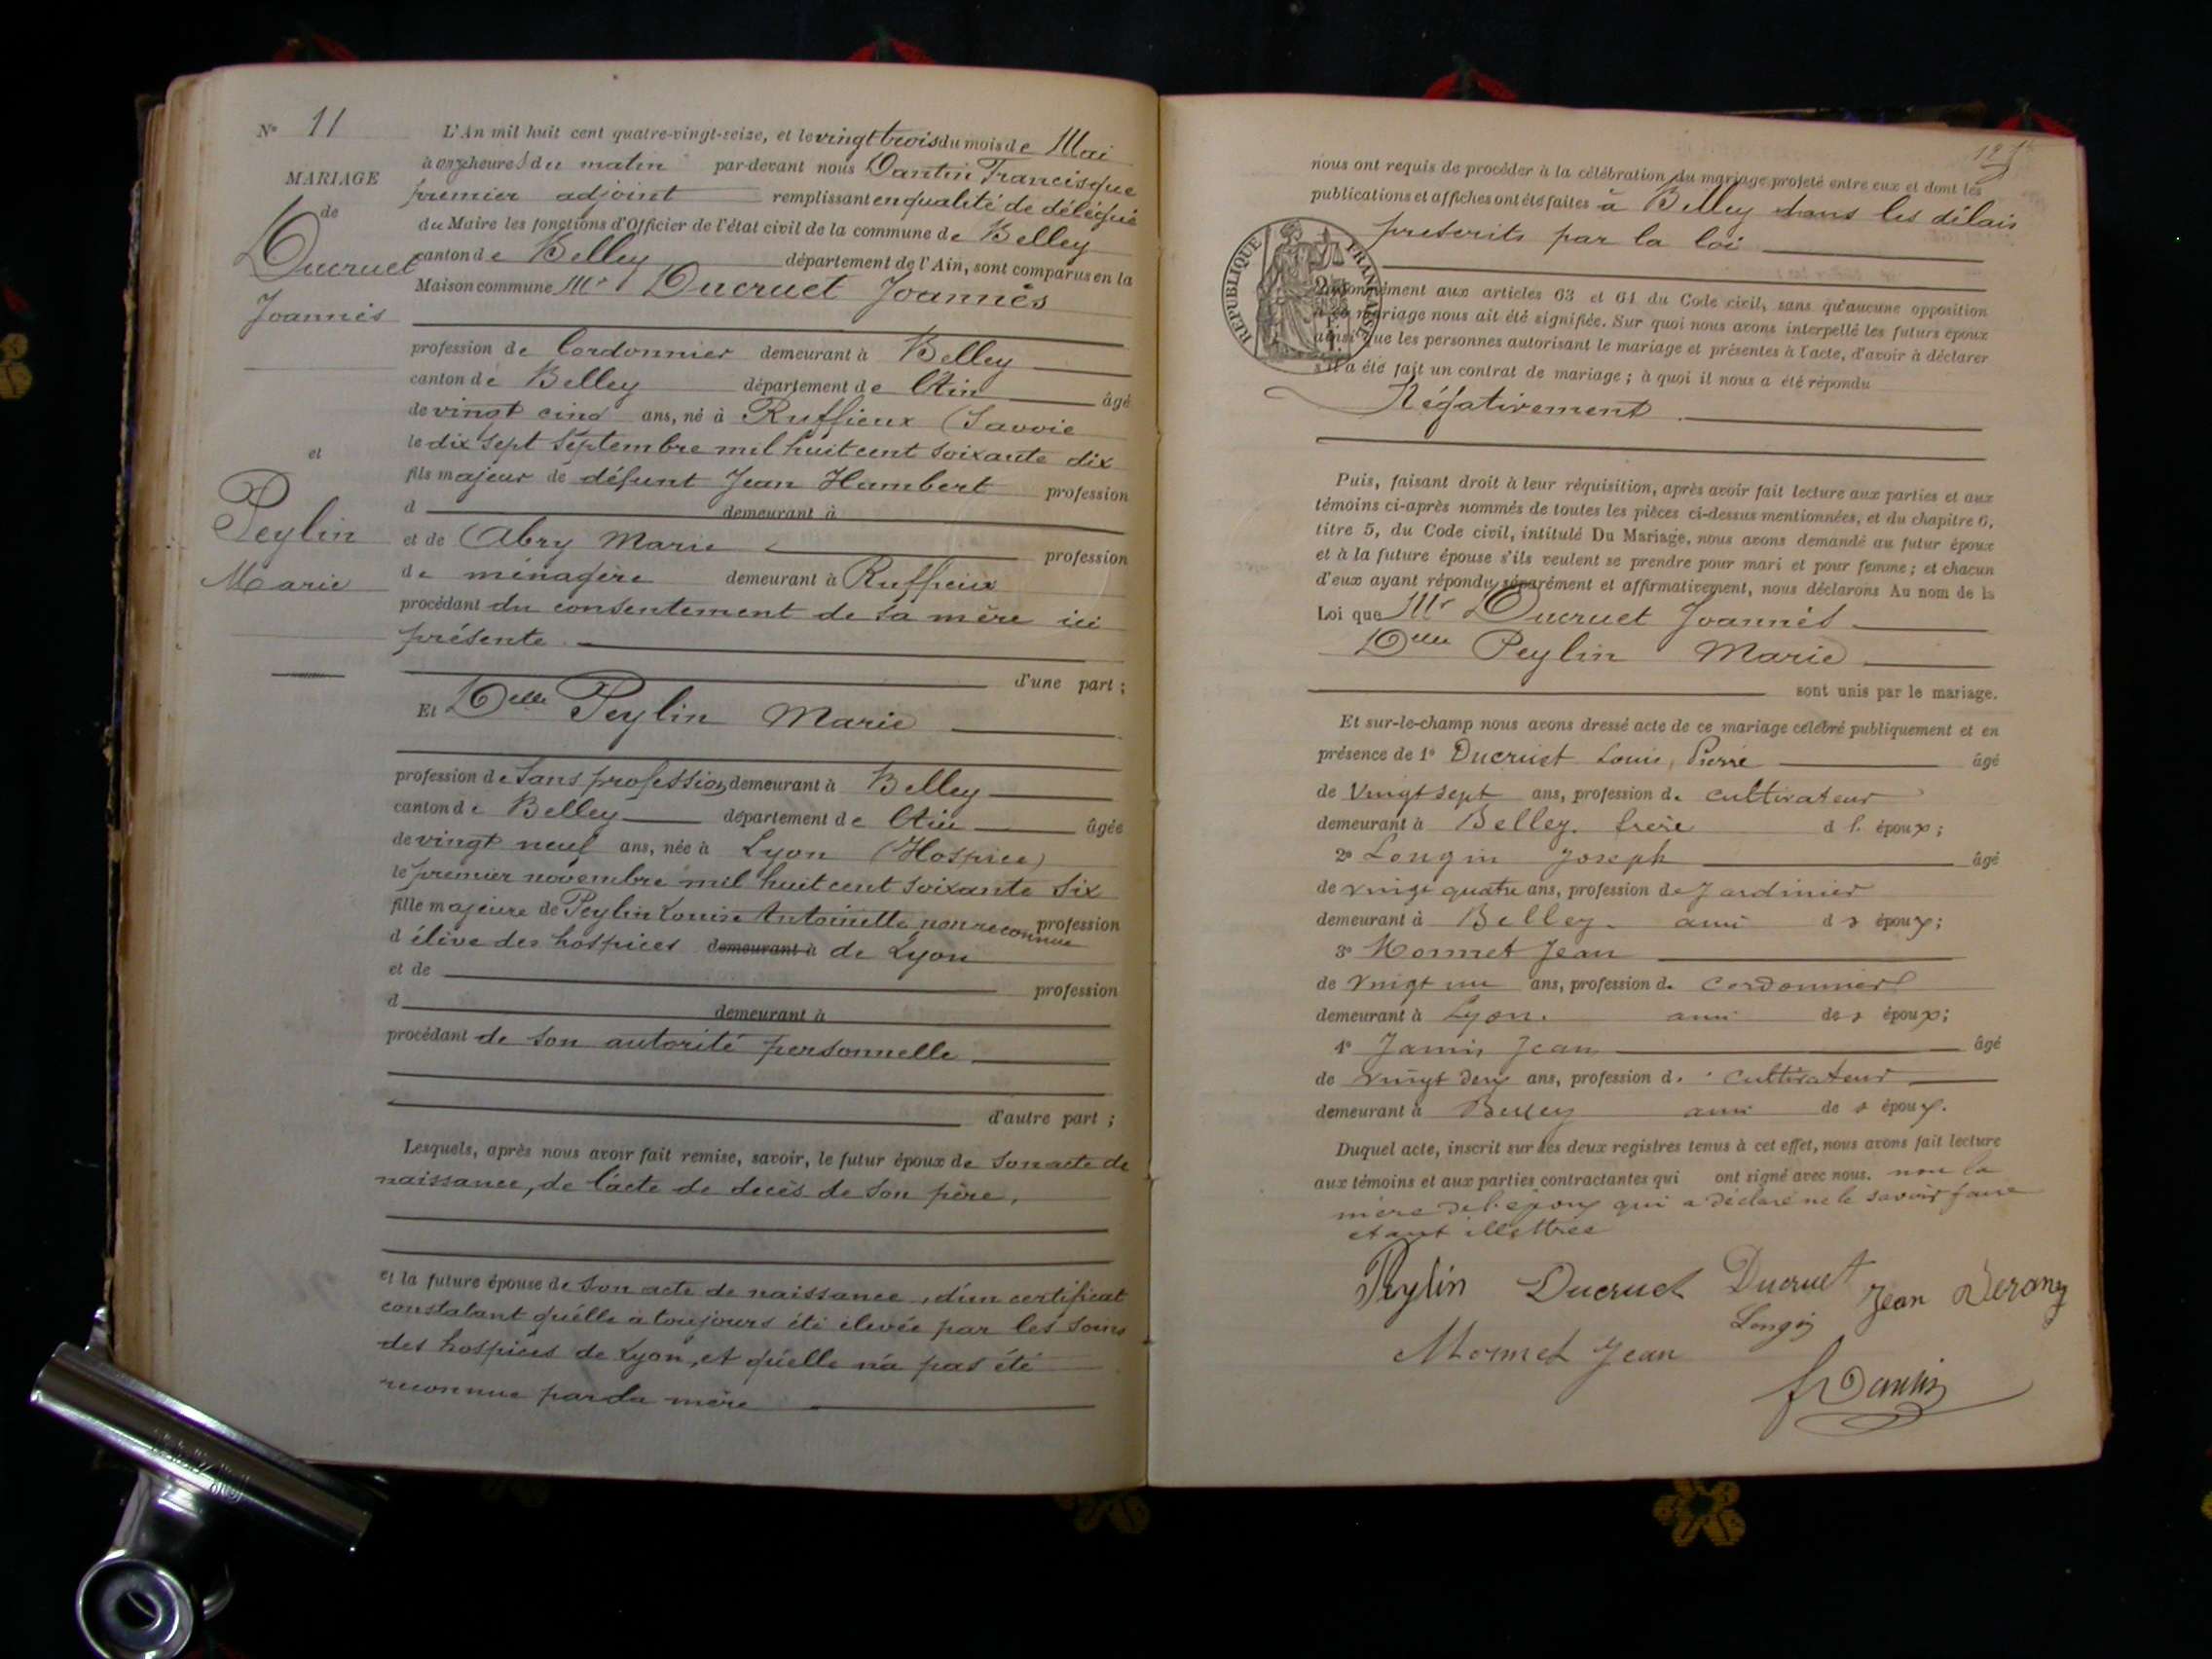 No 11
MARIAGE
de
Ducruet
Joannès
et
Peylin
Marie
L'An mil huit cent quatre-vingt-seize, et le vingt trois du mois de Mai
à onze heures du matin par-devant nous Dantin Francisque
premier adjoint remplissant en qualité de délégué
du Maire les fonctions d'Officier de l'état civil de la commune de Belley
canton de Belley département de l'Ain, sont comparus en la
Maison commune Mr Ducruet Joannès
profession de Cordonnier demeurant à Belley
canton de Belley département de l'Ain âgé
de vingt cinq ans, né à Ruffieux (Savoie
le dix sept Septembre mil huit cent soixante dix
fils majeur de défunt Jean Humbert profession
d demeurant à
et de Abry Marie profession
de ménagère demeurant à Ruffieux
procédant du consentement de sa mère ici
présente
d'une part ;
Et Delle Peylin Marie
profession de Sans profession demeurant à Belley
canton de Belley département de l'Ain âgée
de vingt neuf ans, née à Lyon (Hospice)
le premier novembre mil huit cent soixante six
fille majeure de Peylin Louise Antoinette non reconnue profession
d élève des hospices demeurant à de Lyon
et de profession
d demeurant à
procédant de son autorité personnelle
d'autre part ;
Lesquels, après nous avoir fait remise, savoir, le futur époux de Son acte de
naissance, de l'acte de decès de Son père,
et la future épouse de Son acte de naissance, d'un certificat
constatant qu'elle a toujours été élevée par les soins
des hospices de Lyon, et qu'elle n'a pas été
reconnue par sa mère
nous ont requis de procéder à la célébration du mariage projeté entre eux et dont les
publications et affiches ont été faites à Belley dans les délais
prescrits par la loi
RÉPUBLIQUE FRANÇAISE
Conformément aux articles 63 et 64 du Code civil, sans qu'aucune opposition
à ce mariage nous ait été signifiée. Sur quoi nous avons interpellé les futurs époux
ainsi que les personnes autorisant le mariage et présentes à l'acte, d'avoir à déclarer
s'il a été fait un contrat de mariage ; à quoi il nous a été répondu
Négativement
Puis, faisant droit à leur réquisition, après avoir fait lecture aux parties et aux
témoins ci-après nommés de toutes les pièces ci-dessus mentionnées, et du chapitre 6,
titre 5, du Code civil, intitulé Du Mariage, nous avons demandé au futur époux
et à la future épouse s'ils veulent se prendre pour mari et pour femme ; et chacun
d'eux ayant répondu séparément et affirmativement, nous déclarons Au nom de la
Loi que Mr Ducruet Joannès
Delle Peylin Marie
sont unis par le mariage.
Et sur-le-champ nous avons dressé acte de ce mariage célébré publiquement et en
présence de 1° Ducruet Louis, Pierre âgé
de Vingt sept ans, profession de cultivateur
demeurant à Belley. frère d l. époux ;
2° Longin Joseph âgé
de vingt quatre ans, profession de Jardinier
demeurant à Belley. ami d s époux ;
3° Monnet Jean
de Vingt un ans, profession de cordonnier
demeurant à Lyon. ami des époux ;
4° Jean âgé
de vingt deux ans, profession d. cultivateur
demeurant à Belley ami de s époux.
Duquel acte, inscrit sur les deux registres tenus à cet effet, nous avons fait lecture
aux témoins et aux parties contractantes qui ont signé avec nous. non la
mère de l'époux qui a déclaré ne le savoir faire
étant illettrée
Peylin Ducruet Ducruet Jean
Longin
Monnet Jean
f Dantin